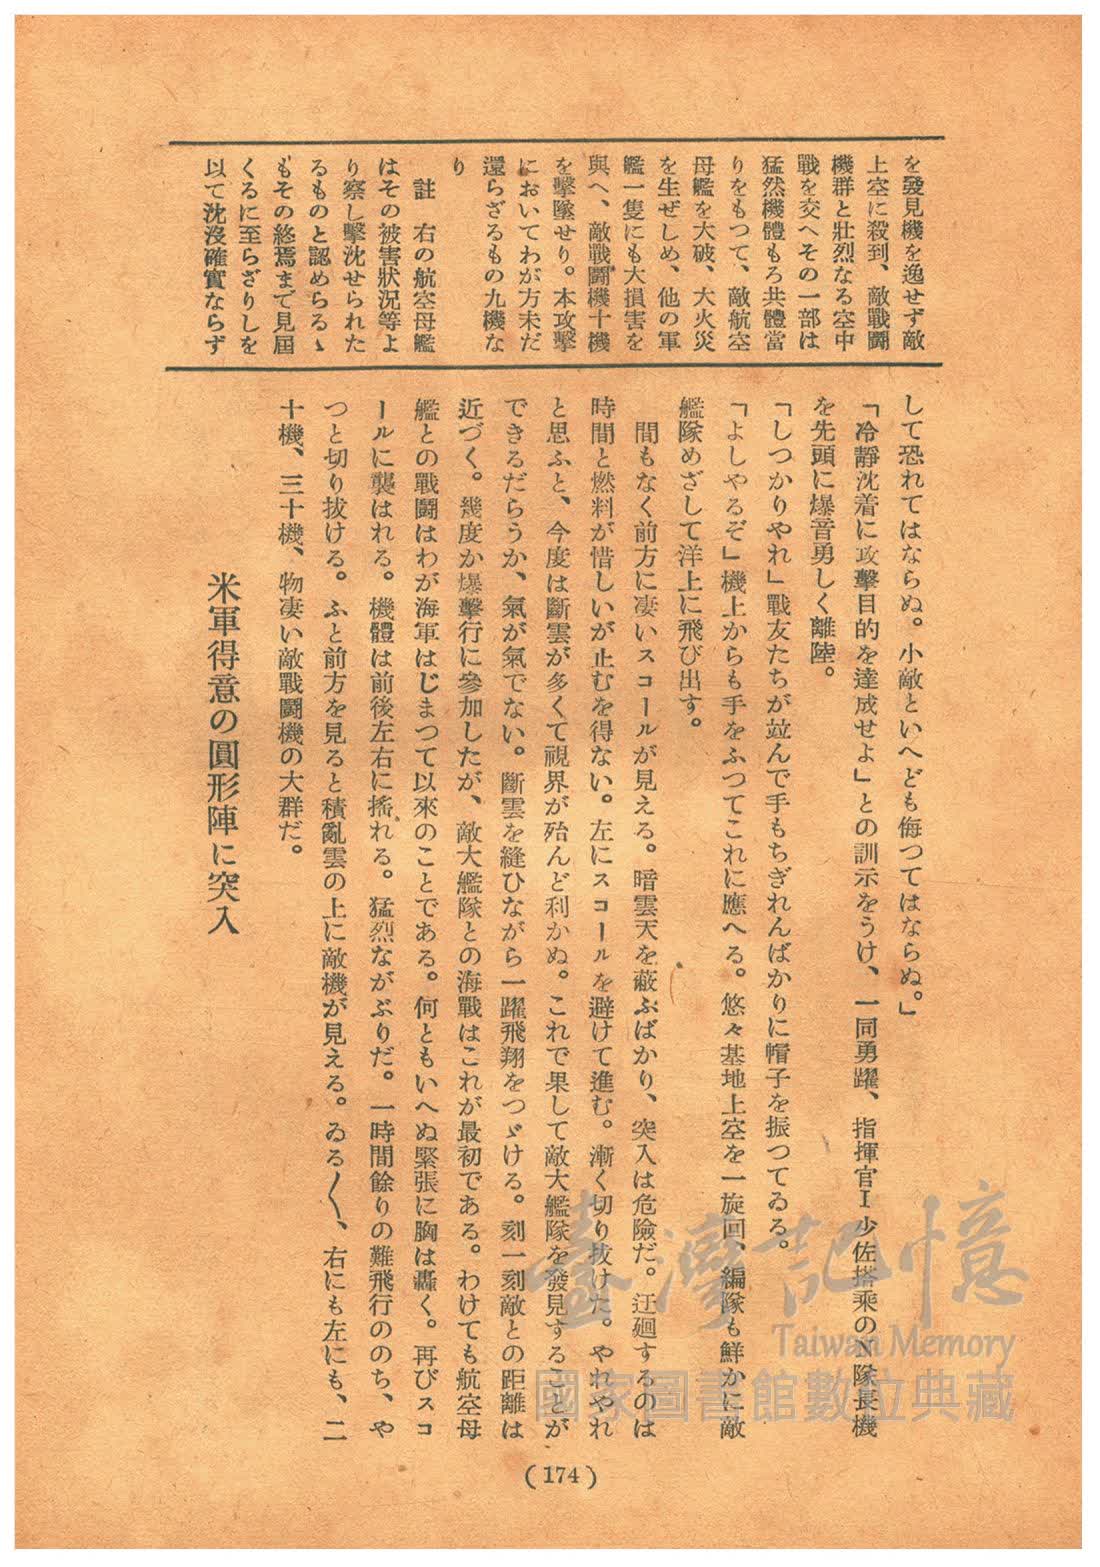 を發見機を逸せず敵
上空に殺到、敵戰鬪
機群と壯烈なる空中
戰を交へその一部は
猛然機體もろ共體當
りをもつて、敵航空
母艦を大破、大火災
を生ぜしめ、他の軍
艦一隻にも大損害を
與へ、敵戰鬪機十機
を擊墜せり。本攻擊
においてわが方未だ
還らざるもの九機な
り
註　右の航空母艦
はその被害狀況等よ
り察し擊沈せられた
るものと認めらるゝ
もその終焉まで見屆
くるに至らざりしを
以て沈沒確實ならず
して恐れてはならぬ。小敵といへども侮つてはならぬ。」
「冷靜沈着に攻擊目的を達成せよ」との訓示をうけ、一同勇躍、指揮官Ｉ少佐塔乘のＮ隊長機
を先頭に爆音勇しく離陸。
「しつかりやれ」戰友たちが竝んで手もちぎれんばかりに帽子を振つてゐる。
「よしやるぞ」機上からも手をふつてこれに應へる。悠々基地上空を一旋回、編隊も鮮かに敵
艦隊めざして洋上に飛び出す。
間もなく前方に凄いスコールが見える。暗雲天を蔽ぶばかり、突入は危險だ。迂廻するのは
時間と燃料が惜しいが止むを得ない。左にスコールを避けて進む。漸く切り拔けた。やれやれ
と思ふと、今度は斷雲が多くて視界が殆んど利かぬ。これで果して敵大艦隊を發見することが
できるだらうか、氣が氣でない。斷雲を縫ひながら一躍飛翔をつゞける。刻一刻敵との距離は
近づく。幾度か爆擊行に參加したが、敵大艦隊との海戰はこれが最初である。わけても航空母
艦との戰鬪はわが海軍はじまつて以來のことである。何ともいへぬ緊張に胸は轟く。再びスコ
ールに襲はれる。機體は前後左右に搖れる。猛烈ながぶりだ。一時間餘りの難飛行ののち、や
つと切り拔ける。ふと前方を見ると積亂雲の上に敵機が見える。ゐる〱、右にも左にも、二
十機、三十機、物凄い敵戰鬪機の大群だ。
米軍得意の圓形陣に突入
(174)
臺灣記憶
Taiwan Memory
國家圖書館數位典藏